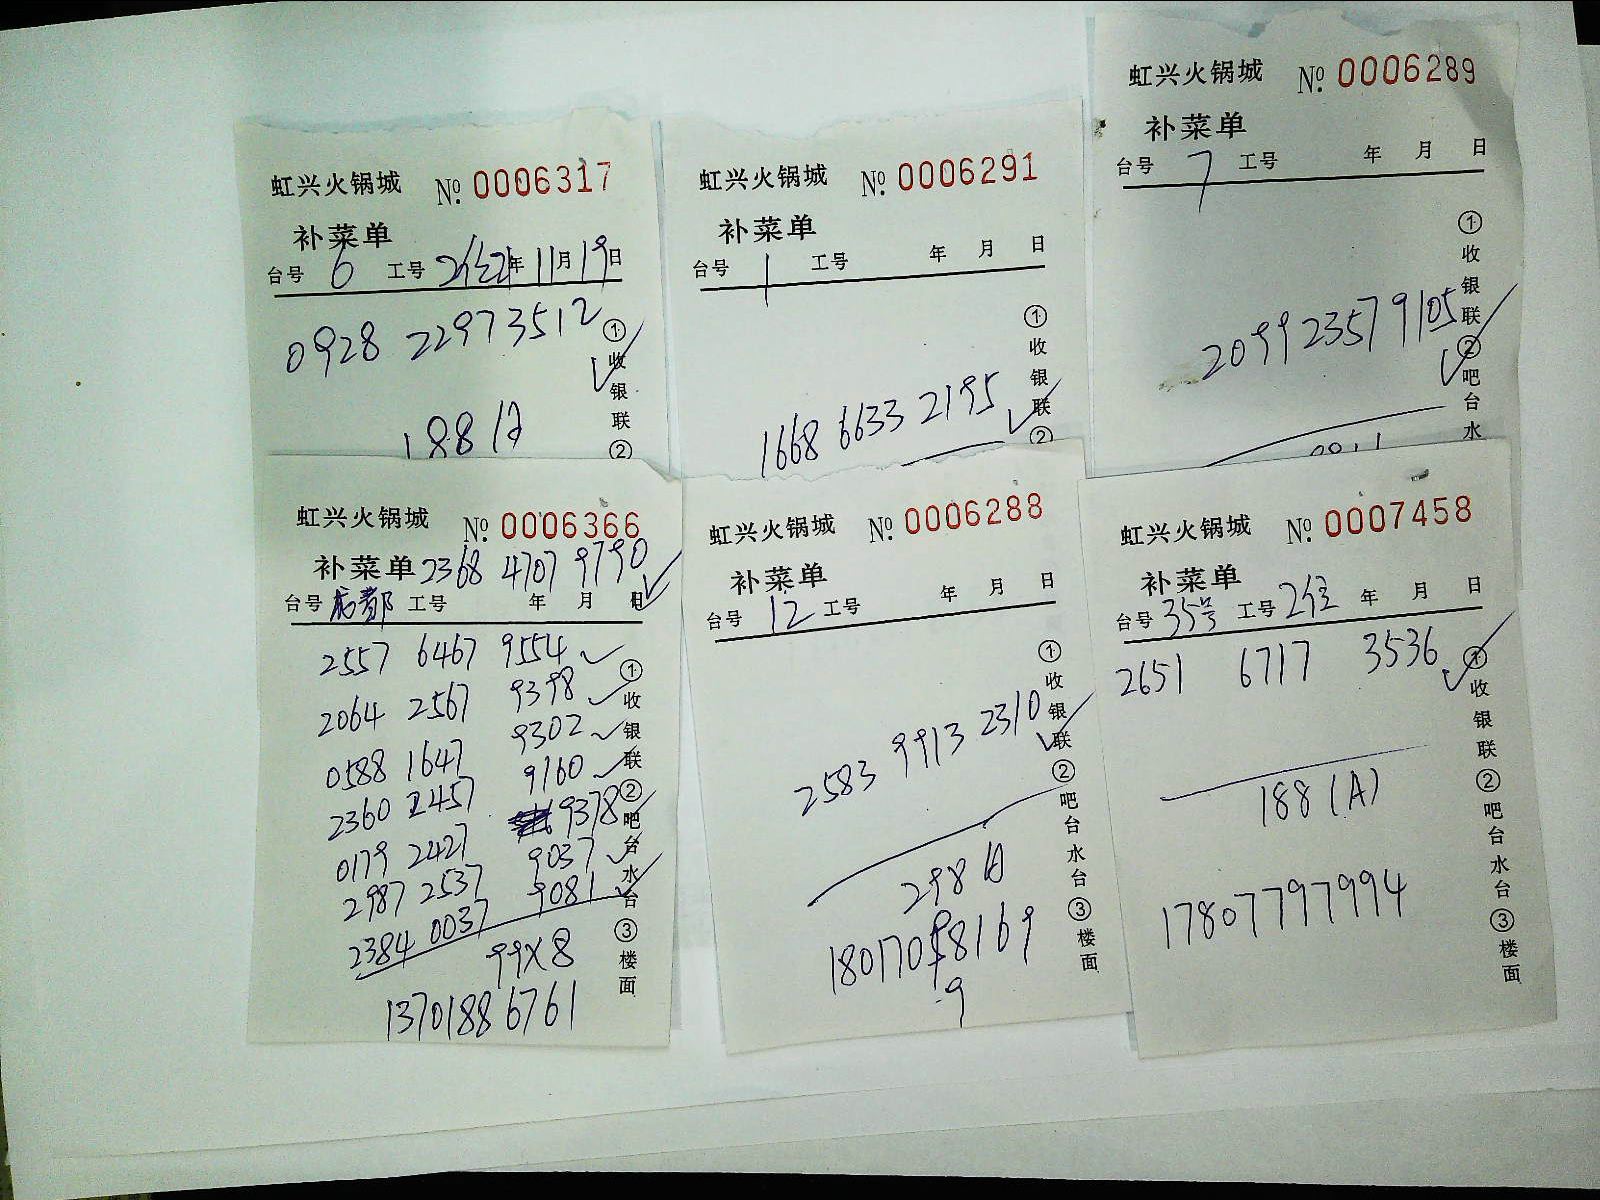 虹兴火锅城 No. 0006317
补菜单
台号 6 工号 年 11月19日
0928 22973512
188 A
①收银联②
虹兴火锅城 No. 0006291
补菜单
台号 1 工号 年 月 日
1668 6633 2195
①收银联②
虹兴火锅城 No. 0006289
补菜单
台号 7 工号 年 月 日
2099 2357 9105
①收银联②吧台水
虹兴火锅城 No. 0006366
补菜单 2368 4707 9790
台号 工号 年 月 日
2557 6467 9554
2064 2567 9398
0588 1647 9302
2360 2457 9160
0179 2427 9378
2987 2537 9037
2384 0037 9081
99X8
13701886761
①收银联②吧台水台③楼面
虹兴火锅城 No. 0006288
补菜单
台号 12 工号 年 月 日
2583 9913 2310
298 A
18017098169
9
①收银联②吧台水台③楼面
虹兴火锅城 No. 0007458
补菜单
台号 35号 工号 2位 年 月 日
2651 6717 3536
188 (A)
17807797994
①收银联②吧台水台③楼面